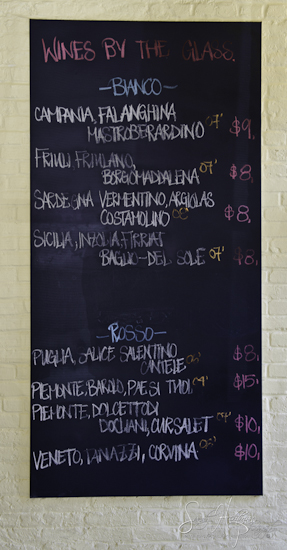 WINES BY THE GLASS.
—BIANCO—
CAMPANIA, FALANGHINA
MASTROBERARDINO 07' $9.
FRIULI FRIULANO,
BORGO MADDALENA 07' $8.
SARDEGNA VERMENTINO, ARGIOLAS
COSTAMOLINO 08' $8.
SICILIA, INZOLIA, FIRRIATO
BAGLIO-DEL SOLE 07' $8.
—ROSSO—
PUGLIA, SALICE SALENTINO
CANTELE $8.
PIEMONTE, BAROLO, PAESI TUOI, 04' $15.
PIEMONTE, DOLCETTO DI
DOGLIANI, CURSALET $10.
VENETO, CORVINA 06' $10.